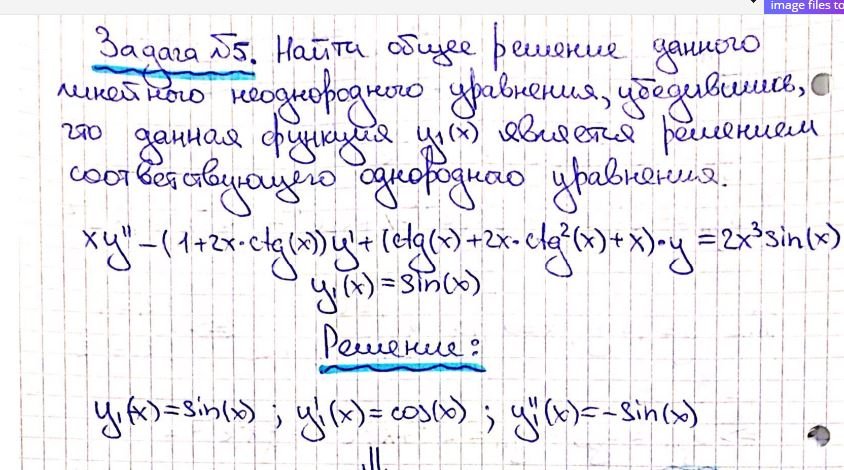 image files to
Задача №5. Найти общее решение данного
линейного неоднородного уравнения, убедившись,
что данная функция y₁(x) является решением
соответствующего однородного уравнения.
xy'' − (1+2x·ctg(x))y' + (ctg(x)+2x·ctg²(x)+x)·y = 2x³sin(x)
y₁(x) = sin(x)
Решение:
y₁(x) = sin(x) ; y₁'(x) = cos(x) ; y₁''(x) = −sin(x)